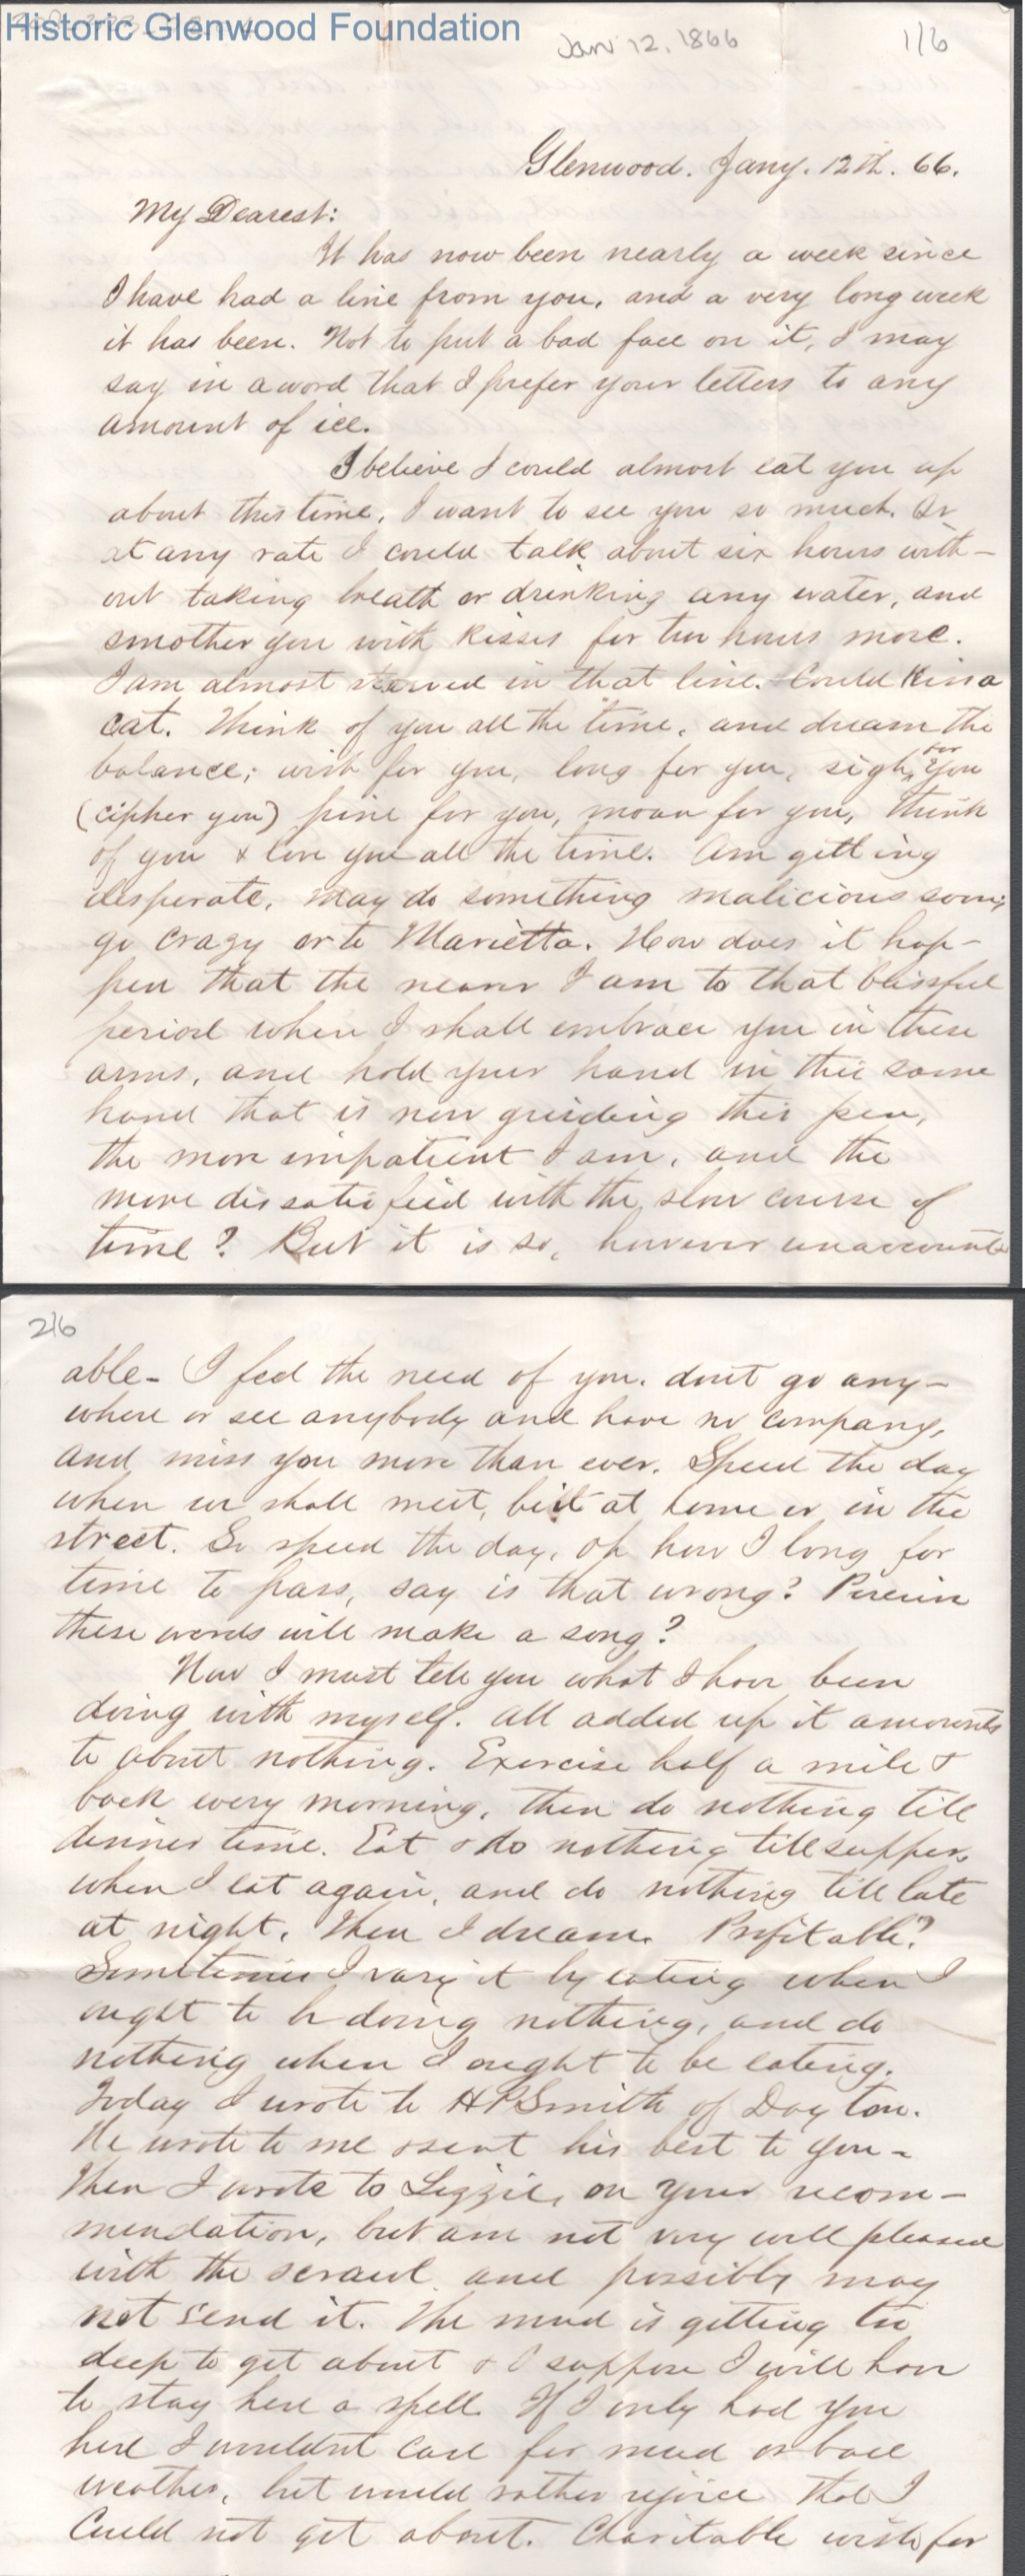 Historic Glenwood Foundation
Jan 12, 1866
1/6
Glenwood. Jany. 12th. 66.
My Dearest:
It has now been nearly a week since
I have had a line from you, and a very long week
it has been. Not to put a bad face on it, I may
say in a word that I prefer your letters to any
amount of ice.
I believe I could almost eat you up
about this time, I want to see you so much. Or
at any rate I could talk about six hours with-
out taking breath or drinking any water, and
smother you with kisses for two hours more.
I am almost starved in that line. Could kiss a
cat. Think of you all the time, and dream the
balance; wish for you, long for you, sigh for you
(cipher you) pine for you, moan for you, think
of you & love you all the time. Am getting
desperate, may do something malicious soon,
go crazy or to Marietta. How does it hap-
pen that the nearer I am to that blissful
period when I shall embrace you in these
arms, and hold your hand in this same
hand that is now guiding this pen,
the more impatient I am, and the
more dissatisfied with the slow course of
time? But it is so, however unaccount
2/6
able- I feel the need of you. dont go any-
where or see anybody and have no company,
and miss you more than ever. Speed the day
when we shall meet, be it at home or in the
street. So speed the day, oh how I long for
time to pass, say is that wrong?
these words will make a song?
Now I must tell you what I have been
doing with myself. All added up it amounts
to about nothing. Exercise half a mile &
back every morning, then do nothing till
dinner time. Eat & do nothing till supper,
when I eat again, and do nothing till late
at night. Then I dream. Profitable?
Sometimes I vary it by eating when I
ought to be doing nothing, and do
nothing when I ought to be eating.
Today I wrote to H P Smith of Dayton.
He wrote to me & sent his best to you-
Then I wrote to Lizzie, on your recom-
mendation, but am not very well pleased
with the scrawl and possibly may
not send it. The mud is getting too
deep to get about & I suppose I will have
to stay here a spell. If I only had you
here I wouldnt care for mud or bad
weather, but would rather rejoice that I
could not get about. Charitable wish for